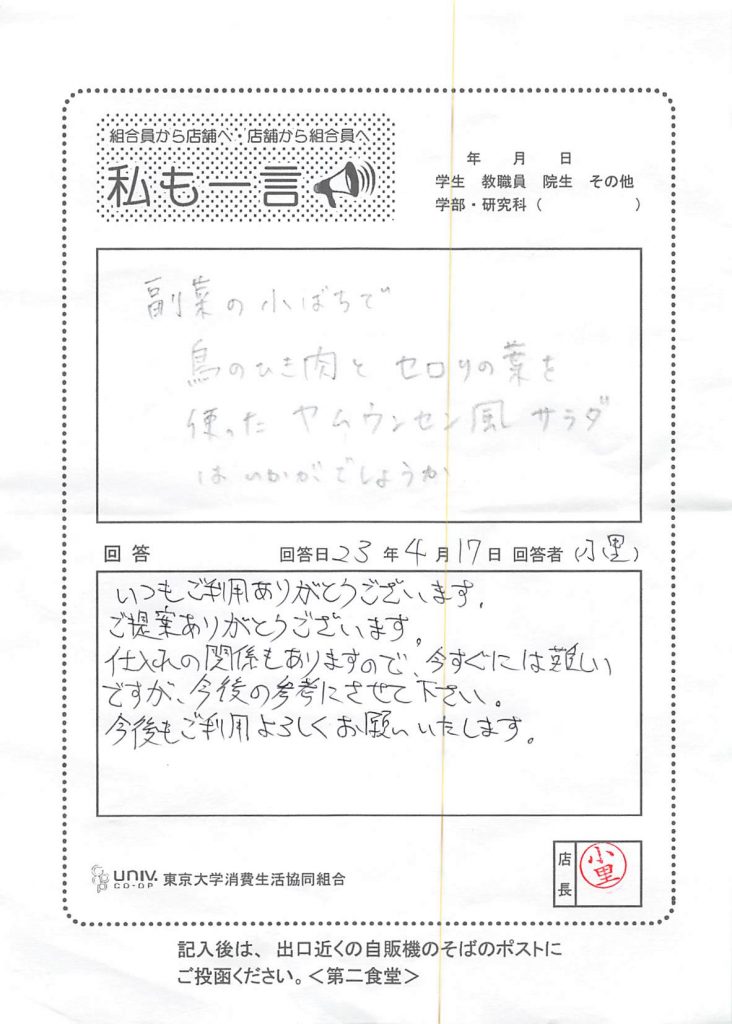 組合員から店舗へ・店舗から組合員へ
私も一言
年 月 日
学生 教職員 院生 その他
学部・研究科( )
副菜の小ばちで
鳥のひき肉と セロリの葉を
使った ヤムウンセン風 サラダ
はいかがでしょうか
回答 回答日23年4月17日 回答者(小里)
いつもご利用ありがとうございます。
ご提案ありがとうございます。
仕入れの関係もありますので、今すぐには難しい
ですが、今後の参考にさせて下さい。
今後もご利用よろしくお願いいたします。
UNIV. CO-OP 東京大学消費生活協同組合
店長 小里
記入後は、出口近くの自販機のそばのポストに
ご投函ください。<第二食堂>